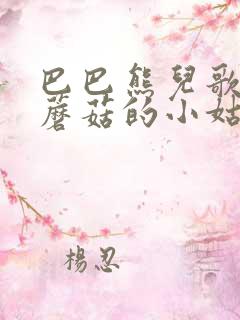 巴巴熊兒歌
蘑菇的小姑
楊忍